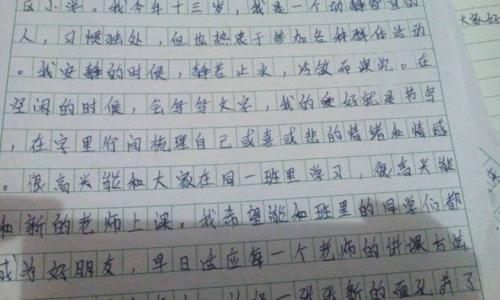 我今年十三岁,我是一个动静皆宜的
人,习惯独处,但也热衷于参加各种群体活动
。我安静的时候,静若止水,冷傲而深沉。在
空闲的时候,会写写文字,我的爱好就是书写
,在字里行间梳理自己或喜或悲的情绪和情感
。很高兴能和大家在同一班里学习,很高兴能
和新的老师上课。我希望能和班里的同学们都
成为好朋友,早日适应每一个老师的讲课方法
一张张新的面孔
大家好